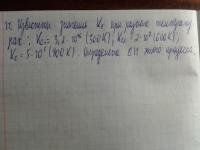 Известны значения Kc при разных температу-
рах: Kc₁ = 3,2·10⁻⁶ (500K), Kc₂ = 2·10² (600K),
Kc = 5·10 (400K). Определите этого процесса.